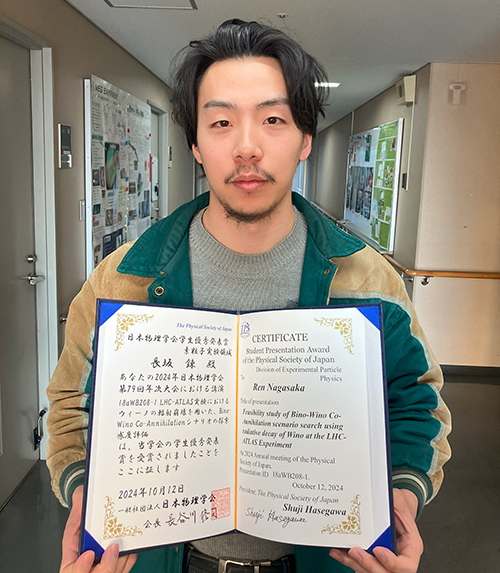 The Physical Society of Japan
日本物理学会学生優秀発表賞
素粒子実験領域
長坂 錬 殿
あなたの2024年日本物理学会
第79回年次大会における講演
18aWB208-1 LHC-ATLAS実験における
ウィーノの輻射崩壊を用いた、Bino-
Wino Co-Annihilation シナリオの探索
感度評価
は、当学会の学生優秀発表
賞を受賞されましたことを
ここに証します
2024年10月12日
一般社団法人日本物理学会
会長 長谷川 修司
CERTIFICATE
Student Presentation Award
of the Physical Society of Japan
Division of Experimental Particle
Physics
To
Ren Nagasaka
Title of presentation
Feasibility study of Bino-Wino Co-
Annihilation scenario search using
radiative decay of Wino at the LHC-
ATLAS Experiment
At 2024 Annual meeting of the Physical
Society of Japan.
Presentation ID 18aWB208-1.
October 12, 2024
President, The Physical Society of Japan
Shuji Hasegawa
Shuji Hasegawa